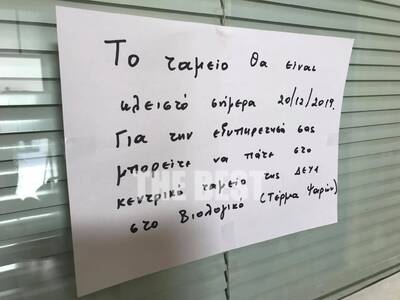 Το ταμείο θα είναι
κλειστό σήμερα 20/12/2019.
Για την εξυπηρέτησή σας
μπορείτε να πάτε στο
THE BEST
κεντρικό ταμείο της ΔΕΥΑ
στο Βιολογικό (Τέρμα Ψαρών)